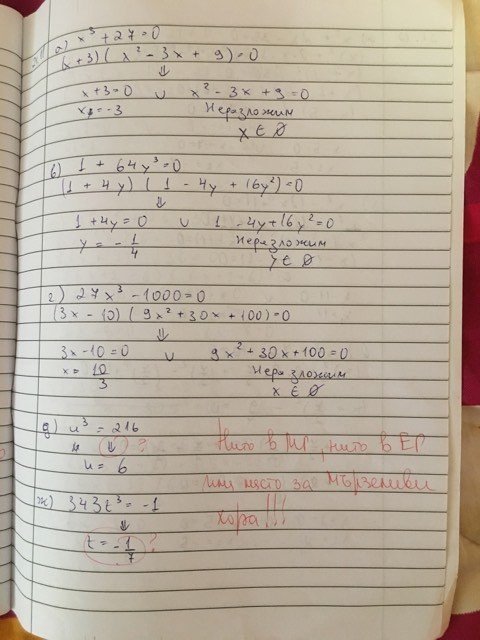 а) x³ + 27 = 0
(x + 3) ( x² - 3x + 9) = 0
⇓
x + 3 = 0 ∪ x² - 3x + 9 = 0
x₁ = -3 Неразложим
x ∈ ∅
в) 1 + 64y³ = 0
(1 + 4y) ( 1 - 4y + 16y²) = 0
⇓
1 + 4y = 0 ∪ 1 - 4y + 16y² = 0
y = - 1/4 Неразложим
y ∈ ∅
г) 27x³ - 1000 = 0
(3x - 10) ( 9x² + 30x + 100) = 0
⇓
3x - 10 = 0 ∪ 9x² + 30x + 100 = 0
x = 10/3 Неразложим
x ∈ ∅
д) u³ = 216
⇓ ?
u = 6
Нито в МР, нито в ЕР
има място за мързеливи
хора!!!
ж) 343t³ = -1
⇓
t = - 1/7 ?